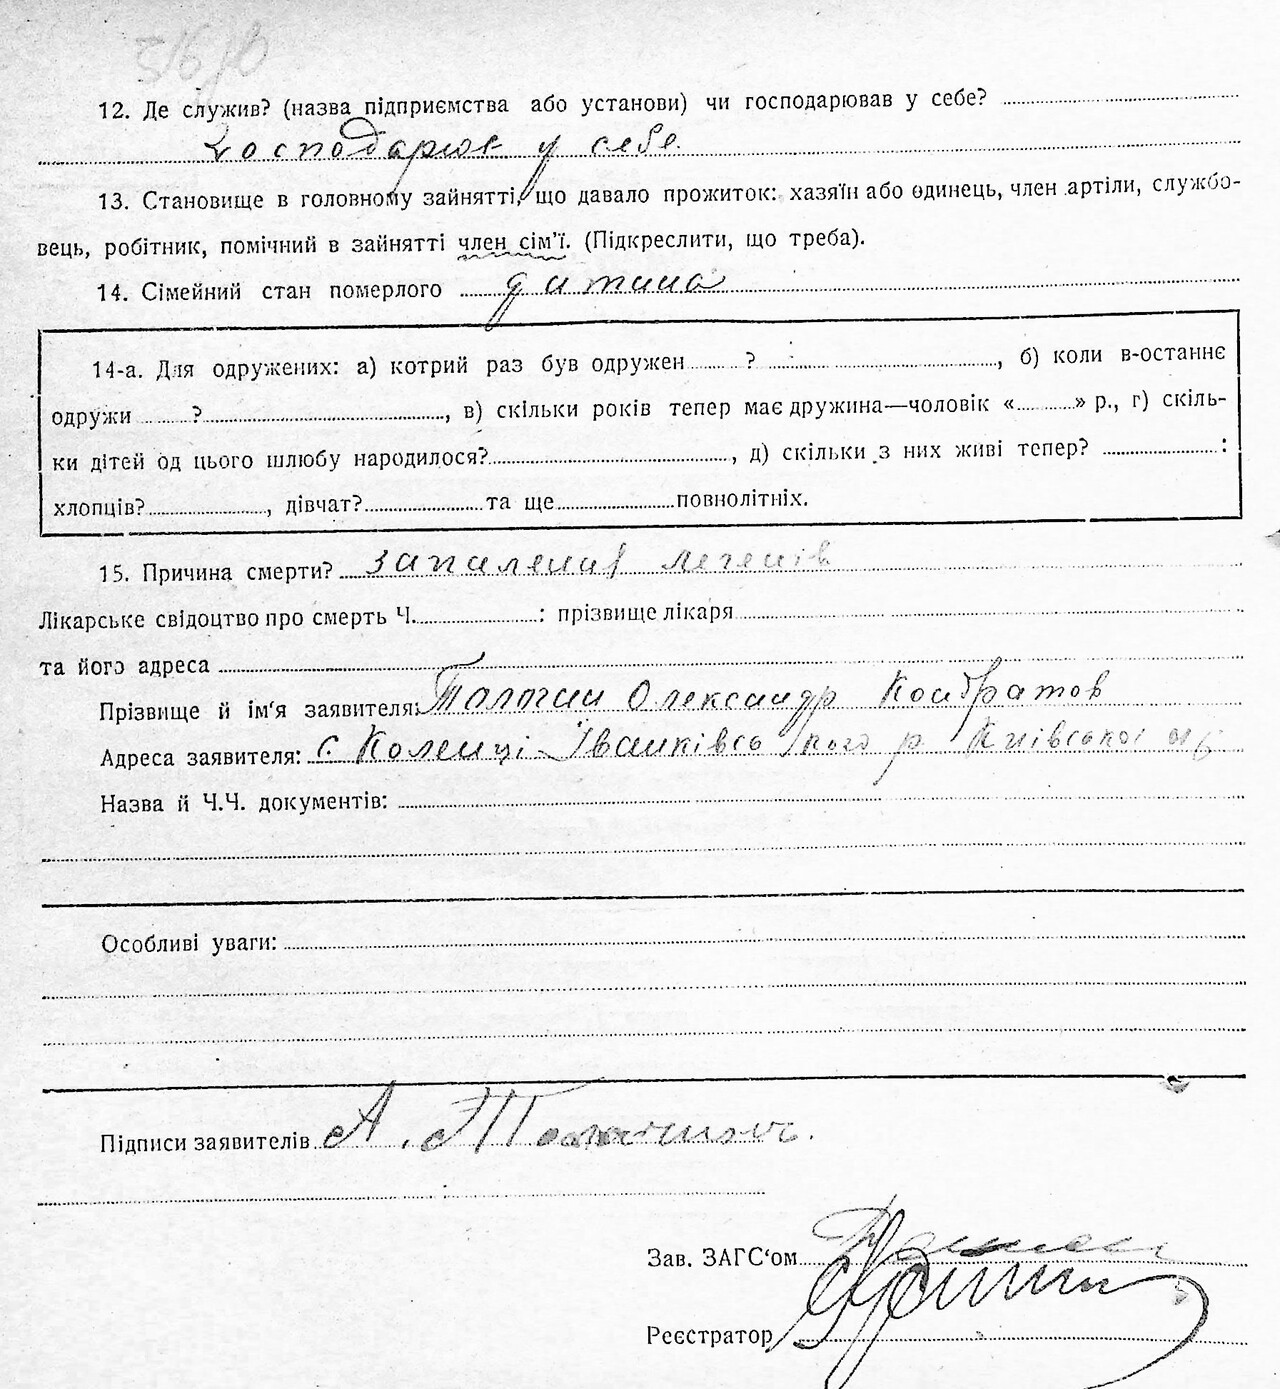 12. Де служив? (назва підприємства або установи) чи господарював у себе?
Господарює у себе.
13. Становище в головному зайнятті, що давало прожиток: хазяїн або одинець, член артілі, службо-
вець, робітник, помічний в зайнятті член сім'ї. (Підкреслити, що треба).
14. Сімейний стан померлого дитина
14-а. Для одружених: а) котрий раз був одружен ? , б) коли в-останнє
одружи ? , в) скільки років тепер має дружина—чоловік « » р., г) скіль-
ки дітей од цього шлюбу народилося? , д) скільки з них живі тепер? :
хлопців? , дівчат? та ще повнолітніх.
15. Причина смерти? запалення легенів
Лікарське свідоцтво про смерть Ч. : прізвище лікаря
та його адреса
Прізвище й ім'я заявителя: Олександр Кондратов
Адреса заявителя: с. Коленці Іванківського р Київської об
Назва й Ч.Ч. документів:
Особливі уваги:
Підписи заявителів А.
Зав. ЗАГС'ом
Реєстратор